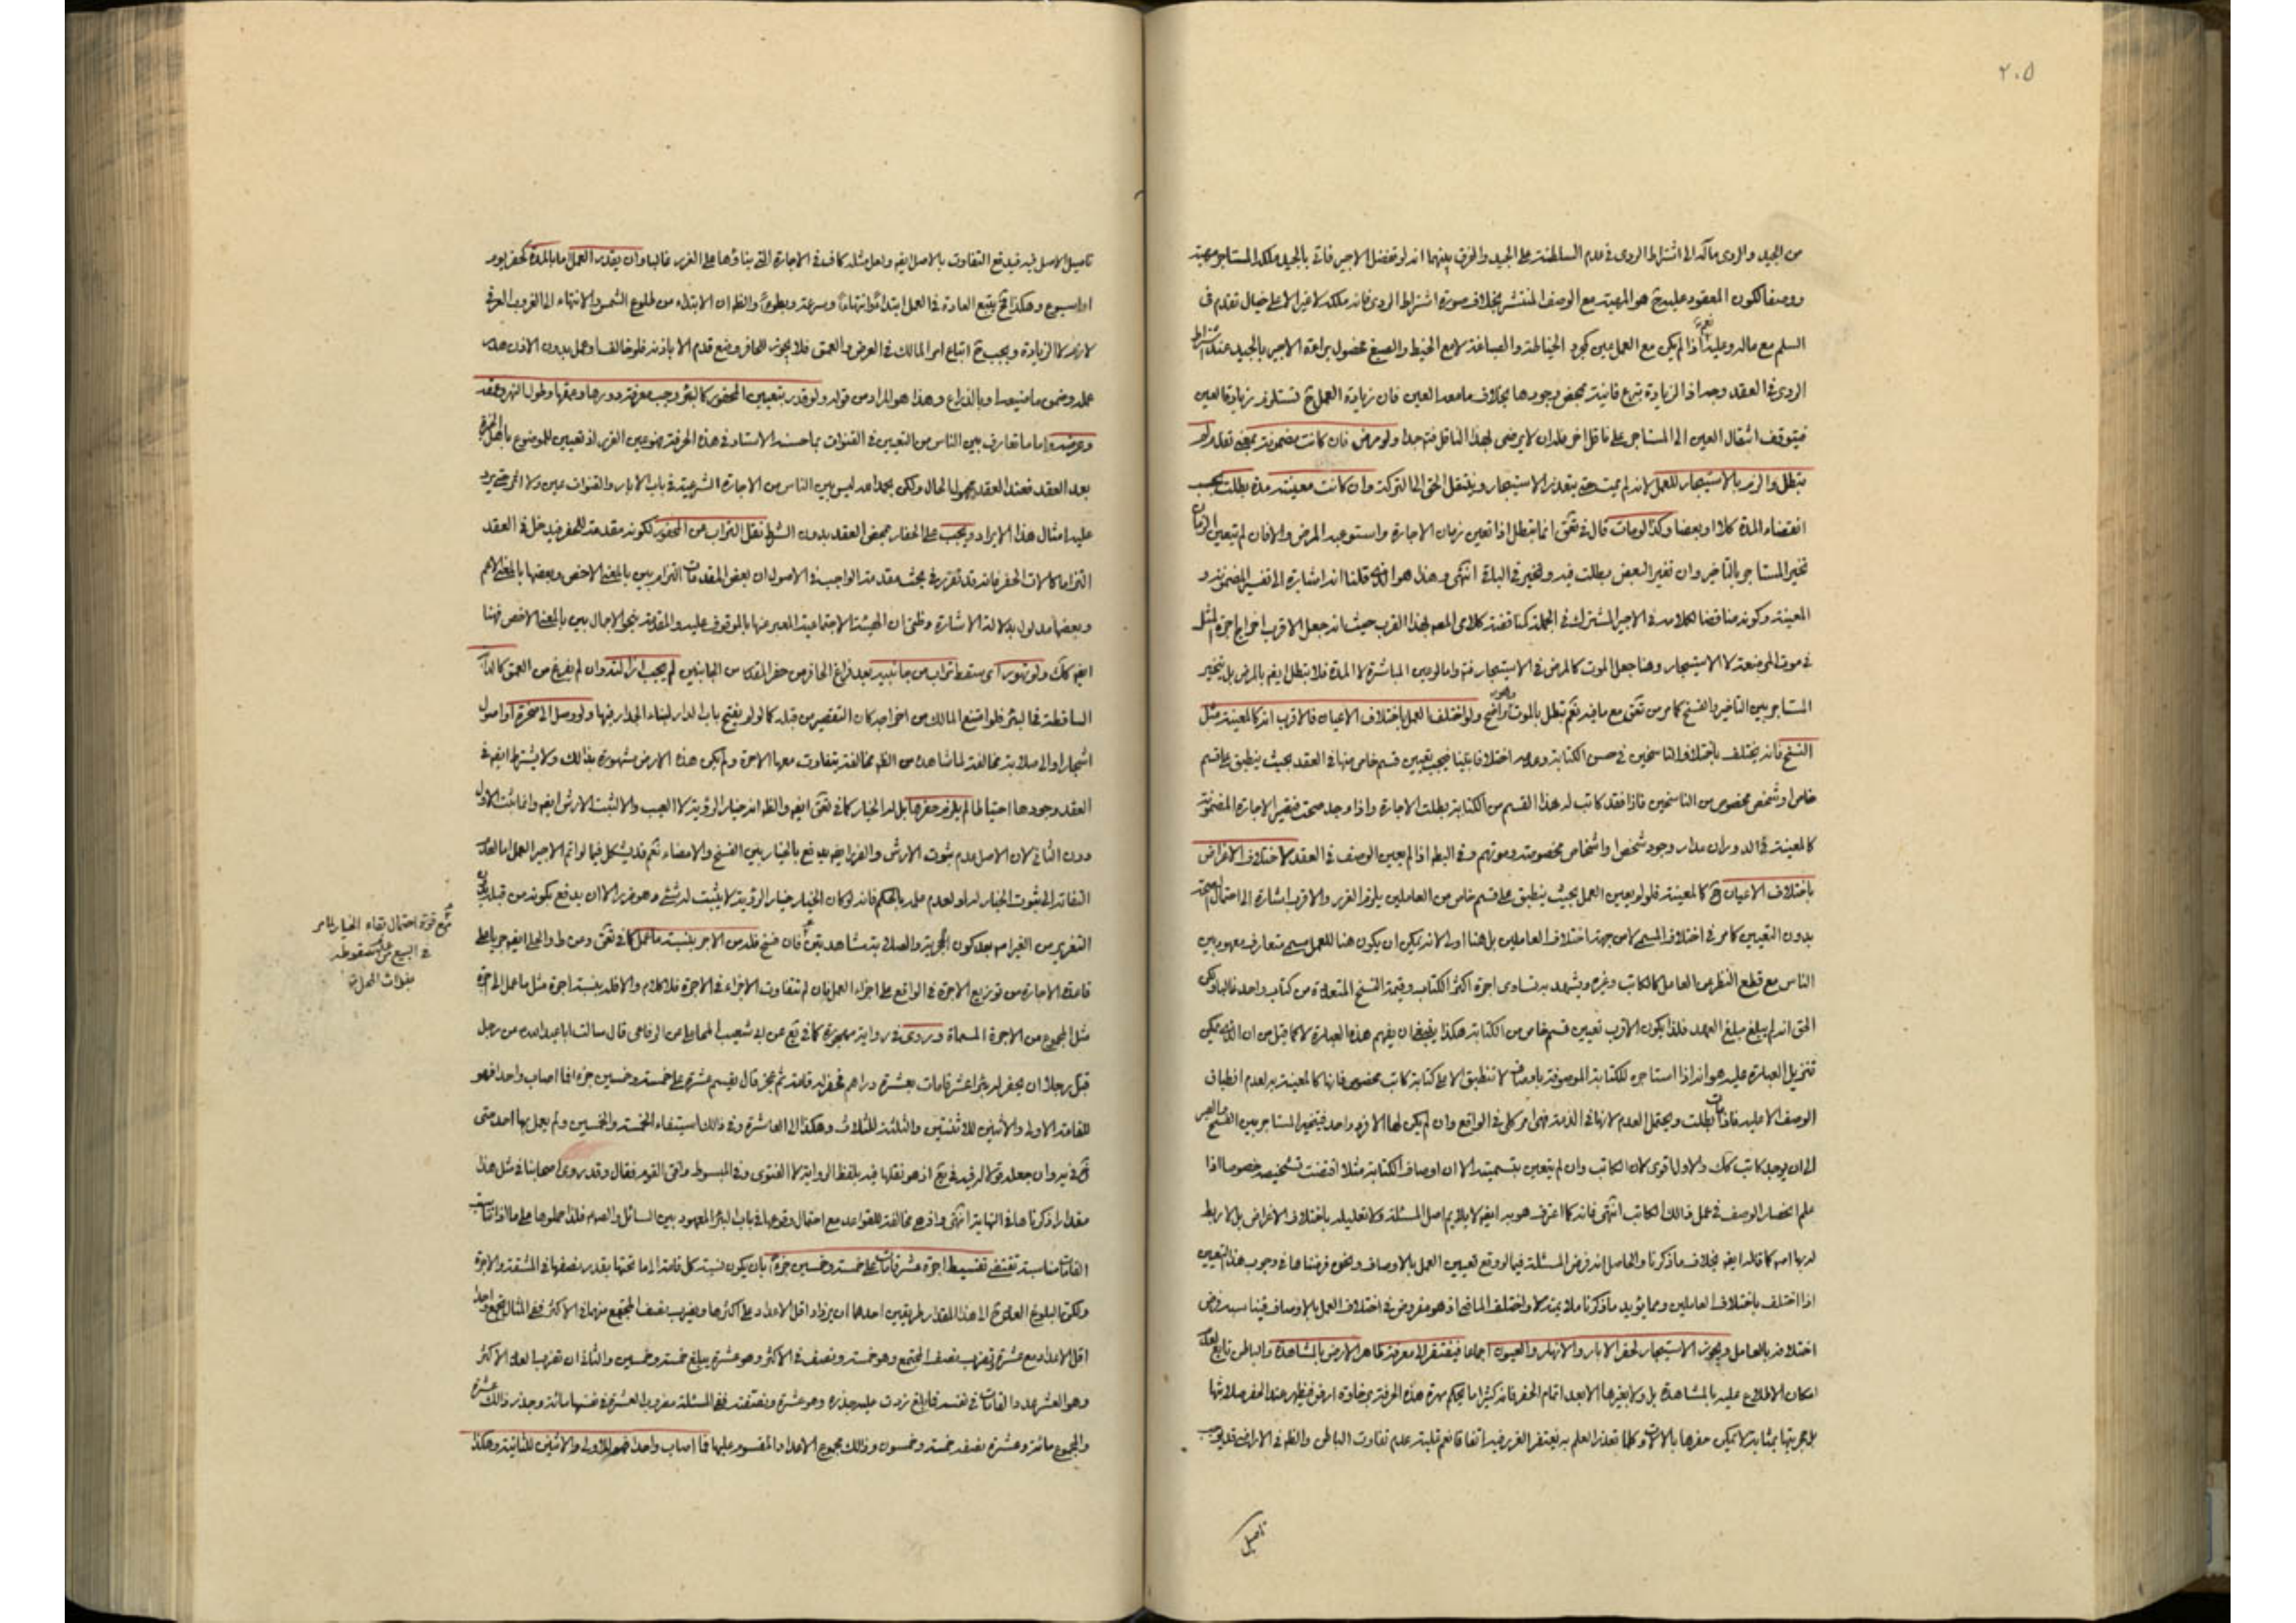 ٢٠٥
من الجيد والردى مآله الى اشتراط الردى في عدم السلطنة على الجيد والفرق بينهما انه لو تفضل الاجير فاتى بالجيد ملكه المستاجر
ووصفا لكون المعقود عليه ح هو المهية مع الوصف المنتشر بخلاف صورة اشتراط الردى فانه ملكه لا غير الا على خيال تقدم في
السلم مع ماله وعليه نعم اذا لم يكن مع العمل عين كجود الخياطة والصباغة لا مع الخيط والصبغ فحصول براءة الاجير بالجيد عند اشتراط
الردى في العقد وجه اذ الزيادة تبرع فانية بمحض وجودها بخلاف ما معه العين فان زيادة العمل ح تستلزم زيادة العين
فيتوقف انتقال العين الى المستاجر على ناقل اخر فله ان لا يرضى بهذا الناقل فته جدا ولو مرض فان كانت مضمونة بمعنى تعد لم
تبطل والزم بالاستيجار للعمل لانه لم يمت حتى يتعذر الاستيجار وينتقل الحق الى التركة وان كانت معينة مدة بطلت بحسب
انقضاء المدة كلا او بعضا وكذا لو مات قال في تحق انما تبطل اذا تعين زمان الاجارة واستوعبه المرض والا فان لم يتعين الزمان
تخير المستاجر بالتأخير وان تغير البعض بطلت فيه وتخير في الباقي انتهى وهذا هو الذي قلنا انه اشارة الى تفسير المضمونة و
المعينة وكونه مناقضا لكلامه في الاجير المشترك في الجملة كمناقضة كلامي المصه لهذا القرب حيث انه جعل الاقرب اخراج اجرة المثل
في موت المرضعة لا الاستيجار وهنا جعل الموت كالمرض في الاستيجار فته واما لو عين المباشرة لا المدة فلا تبطل ايضه بالمرض بل يتخير
المستاجر بين التأخير والفسخ كما مر من تحق مع ما فيه نعم تبطل بالموت وهو واضح ولو اختلف العمل باختلاف الاعيان فالاقرب انه كالمعينة مثل
النسخ فانه يختلف باختلاف الناسخين في حسن الكتابة وعدمه اختلافا بينا فيجب تعيين قسم خاص منها في العقد بحيث ينطبق على قسم
خاص او شخص مخصوص من الناسخين فاذا فقد كاتب له هذا القسم من الكتابة بطلت الاجارة واذا وجد صحت فيصير الاجارة المضمونة
كالمعينة في الدوران مدار وجود شخص او اشخاص مخصوصة وموتهم وفي البطه اذا لم يعين الوصف في العقد لاختلاف الاغراض
باختلاف الاعيان ح كالمعينة فلو لم يعين العمل بحيث ينطبق على قسم خاص من العاملين يلزم الغرر والاقرب اشارة الى احتمال الصحة
بدون التعيين كما مر في اختلاف المسمى لا من جهة اختلاف العاملين بل هنا اولى لانه يمكن ان يكون هنا للعمل مسمى متعارف معهود بين
الناس مع قطع النظر عن العامل كالكاتب وغيره ويشهد به تساوى اجرة اكثر الكتاب وقيمة النسخ المتعددة من كتاب واحد غالبا ولكن
الحق انه لم يبلغ مبلغ العهد فلذا يكون الاقرب تعيين قسم خاص من الكتابة هكذا ينبغي ان يفهم هذه العبارة لا كما قيل من ان الذي يمكن
تنزيل العبارة عليه هو انه اذا استاجره للكتابة الموصوفة باوصاف لا تنطبق الا على كتابة كاتب مخصوص فانها كالمعينة به لعدم انطباق
الوصف الا عليه فاذا مات بطلت ويحتمل العدم لانها في الذمة فهي امر كلى في الواقع وان لم يكن لها الا فرد واحد فيتخير المستاجر بين الفسخ والصبر
الى ان يوجد كاتب كك والاول اقوى لان الكاتب وان لم يتعين بتسميته الا ان اوصاف الكتابة مثلا اقتضت تشخيصه خصوصا اذا
علم انحصار الوصف في عمل ذلك الكاتب انتهى فانه كما اعترف هو به ايضه لا يلايم اصل المسئلة ولا تعليله باختلاف الاغراض بل لا ربط
له بها اصه كما قاله ايضه بخلاف ما ذكرنا والحاصل انه فرض المسئلة فيما لو وقع تعيين العمل بالاوصاف ونحن فرضناها في وجوب هذا التعيين
اذا اختلف باختلاف العاملين ومما يؤيد ما ذكرنا ملايمته لاواختلف الماضى اذ هو مفروض في اختلاف العمل بالاوصاف فيناسبه فرض
اختلافه بالعامل ويجوز الاستيجار لحفر الابار والانهار والعيون اجماعا فيفتقر الى معرفة ظاهر الارض بالمشاهدة والباطن تابع لعدم
امكان الاطلاع عليه بالمشاهدة بل ولا بغيرها الا بعد اتمام الحفر فانه كثيرا ما يحكم مهرة هذه الحرفة برخاوة ارض فيظهر عند الحفر صلابتها
بل حجريتها بمثابة لا يمكن حفرها بالالات وكلما تعذر العلم به يغتفر الغرر فيه اتفاقا نعم قلية عدم تفاوت الباطن والظه في الاراضى
تاصيل
تاصيل الاصل فيه فيدفع التفاوت بالاصل ايضه ولعل مثله كاف في الاجارة التي بناؤها على الغرر غالبا وان يقدر العمل اما بالمدة كحفر يوم
او اسبوع وهكذا ح يتبع العادة في العمل ابتداءً وانتهاءً وسرعة وبطوءً والظه ان الابتداء من طلوع الشمس والانتهاء الى الغروب العرفي
لازمه لا الزيادة ويجب ح اتباع امر المالك في العرض والعمق فلا يجوز للحافر وضع قدم الا باذنه فلو خالف او عمل بدون الاذن هدر
عمله وضمن ما فيه او بالذراع وهذا هو المراد من قوله ولو قدر بتعيين المحفور كالبئر وجب معرفة دورها وعمقها وطول النهر وعمقه
وعرضه واما ما تعارف بين الناس من التعيين في القنوات بما حسنه الاستاد في هذه الحرفة فهو عين الغرر اذ تعيين الموضوع باهل الخبرة
بعد العقد فعند العقد مجهول الحال ولكن بحمد الله ليس بين الناس من الاجارة الشرعية في باب الابار والقنوات عين ولا اثر حتى يرد
عليه امثال هذا الايراد ويجب على الحفار بمحض العقد بدون الشرط نقل التراب عن المحفور لكونه مقدمة للحفر فيدخل في العقد
التزاما كالات الحفر فانه قد تقرر في بحث مقدمة الواجب في الاصول ان بعض المقدمات التزام بين بالمعنى الاخص وبعضها بالمعنى الاعم
وبعضها مدلول بدلالة الاشارة وظنى ان الهيئة الاجتماعية المعبر عنها بالموقوف عليه والمقدمة بنحو الاجمال بين بالمعنى الاخص فهنا
ايضه كك ولو تهور اى سقط تراب من جانبيه بعد فراغ الحافر من حفر المقدار من الجانبين لم يجب ازالته وان لم يفرغ من العمق كالدابة
الساقطة في البئر فلو امتنع المالك من اخراجه كان التقصير من قبله كما لو لم يفتح باب الدار لبناء الجدار فيها ولو وصل الى صخرة او اصول
اشجار او الى صلابة مخالفة لما شاهده من الظه مخالفة يتفاوت معها الاجرة ولم يكن هذه الارض مشهورة بذلك ولا يشترط ايضه في
العقد وجودها احتياطا لم يلزم حفرها بل له الخيار كما في تحق ايضه والظه انه خيار الرؤية لا العيب والا لثبت الارش ايضه وانما ثبت الاول
دون الثاني لان الاصل عدم ثبوت الارش والضرر ايضه يدفع بالخيار بين الفسخ والامضاء نعم قد يشكل فيما لو اتم الاجير العمل اما لعدم
التفاته الى ثبوت الخيار له او لعدم علمه بالحكم فانه لو كان الخيار خيار الرؤية لا يثبت له شئ وهو ضرر الا ان يدفع بكونه من قبله
التغرير من الغير اصه بعد كون الحجرية والصلابة مشاهدتين فان فسخ فله من الاجر بنسبة ما عمل كما في تحق ومن ط والحلى ايضه جريا على
قاعدة الاجارة من توزيع الاجرة في الواقع على اجزاء العمل فان لم تتفاوت الاجزاء في الاجرة فلا كلام والا فله بنسبة اجرة مثل ما عمل الى اجرة
مثل المجموع من الاجرة المسماة وروى في رواية مهجورة كما في يع عن ابى شعيب المحاملى عن الرفاعى قال سالت ابا عبد الله عن رجل
قبل رجلا ان يحفر له بئرا عشر قامات بعشرة دراهم فحفر له قامة ثم عجز قال يقسم عشرة على خمسة وخمسين جزء فما اصاب واحدا فهو
للقامة الاولى والاثنين للاثنتين والثلثة للثلاث وهكذا الى العاشرة وفى ذلك استيفاء الخمسة والخمسين ولم يعمل بها احد حتى
ق في ير وان جعله قولا له فيه في يع اذ هو نقلها فيه بلفظ الرواية لا الفتوى وفى المبسوط وافق القوم فقال وقد روى اصحابنا في مثل هذا
مقدارا ذكرناها في النهاية انتهى وافرط مخالفة للقواعد مع احتمال وقوعها في باب البئر المعهود بين السائل والامام فلذا حملوها على ما اذا
القامات مناسبة تقتضى تقسيط اجرة عشر قامات على خمسة وخمسين جزءً بان يكون نسبة كل قامة الى ما تحتها بقدر نصفها في المشقة والاجرة
ولكن لبلوغ العدد ح الى هذا المقدار طريقين احدهما ان يزداد اقل الاعداد على اكثرها ويضرب نصف المجتمع منهما في الاكثر ففى المثال تجمع واحدا
اقل الاعداد مع عشرة وتضرب نصف المجتمع وهو خمسة ونصف في الاكثر وهو عشرة يبلغ خمسة وخمسين والثانى ان تضرب العدد الاكثر
وهو العشر عدد القامات في نفسه فما بلغ زدت عليه جذره وهو عشرة ونصفته ففى المسئلة مضروب العشرة في نفسها مائة وجذر ذلك عشرة
والمجموع مائة وعشرة نصفه خمسة وخمسون وذلك مجموع الاعداد المقسوم عليها فما اصاب واحدا فهو للاولى والاثنين للثانية وهكذا
مع قوة احتمال بقاء الخيار كما مر
في البيع من سقوطه
بفوات المحل